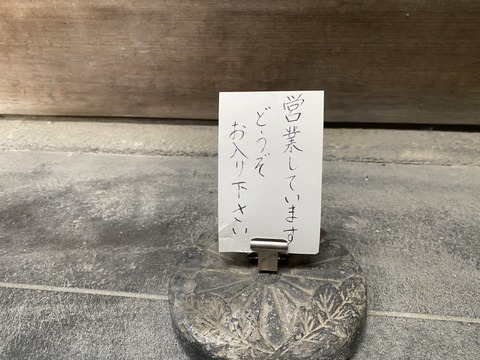 営業しています
どうぞ
お入り下さい